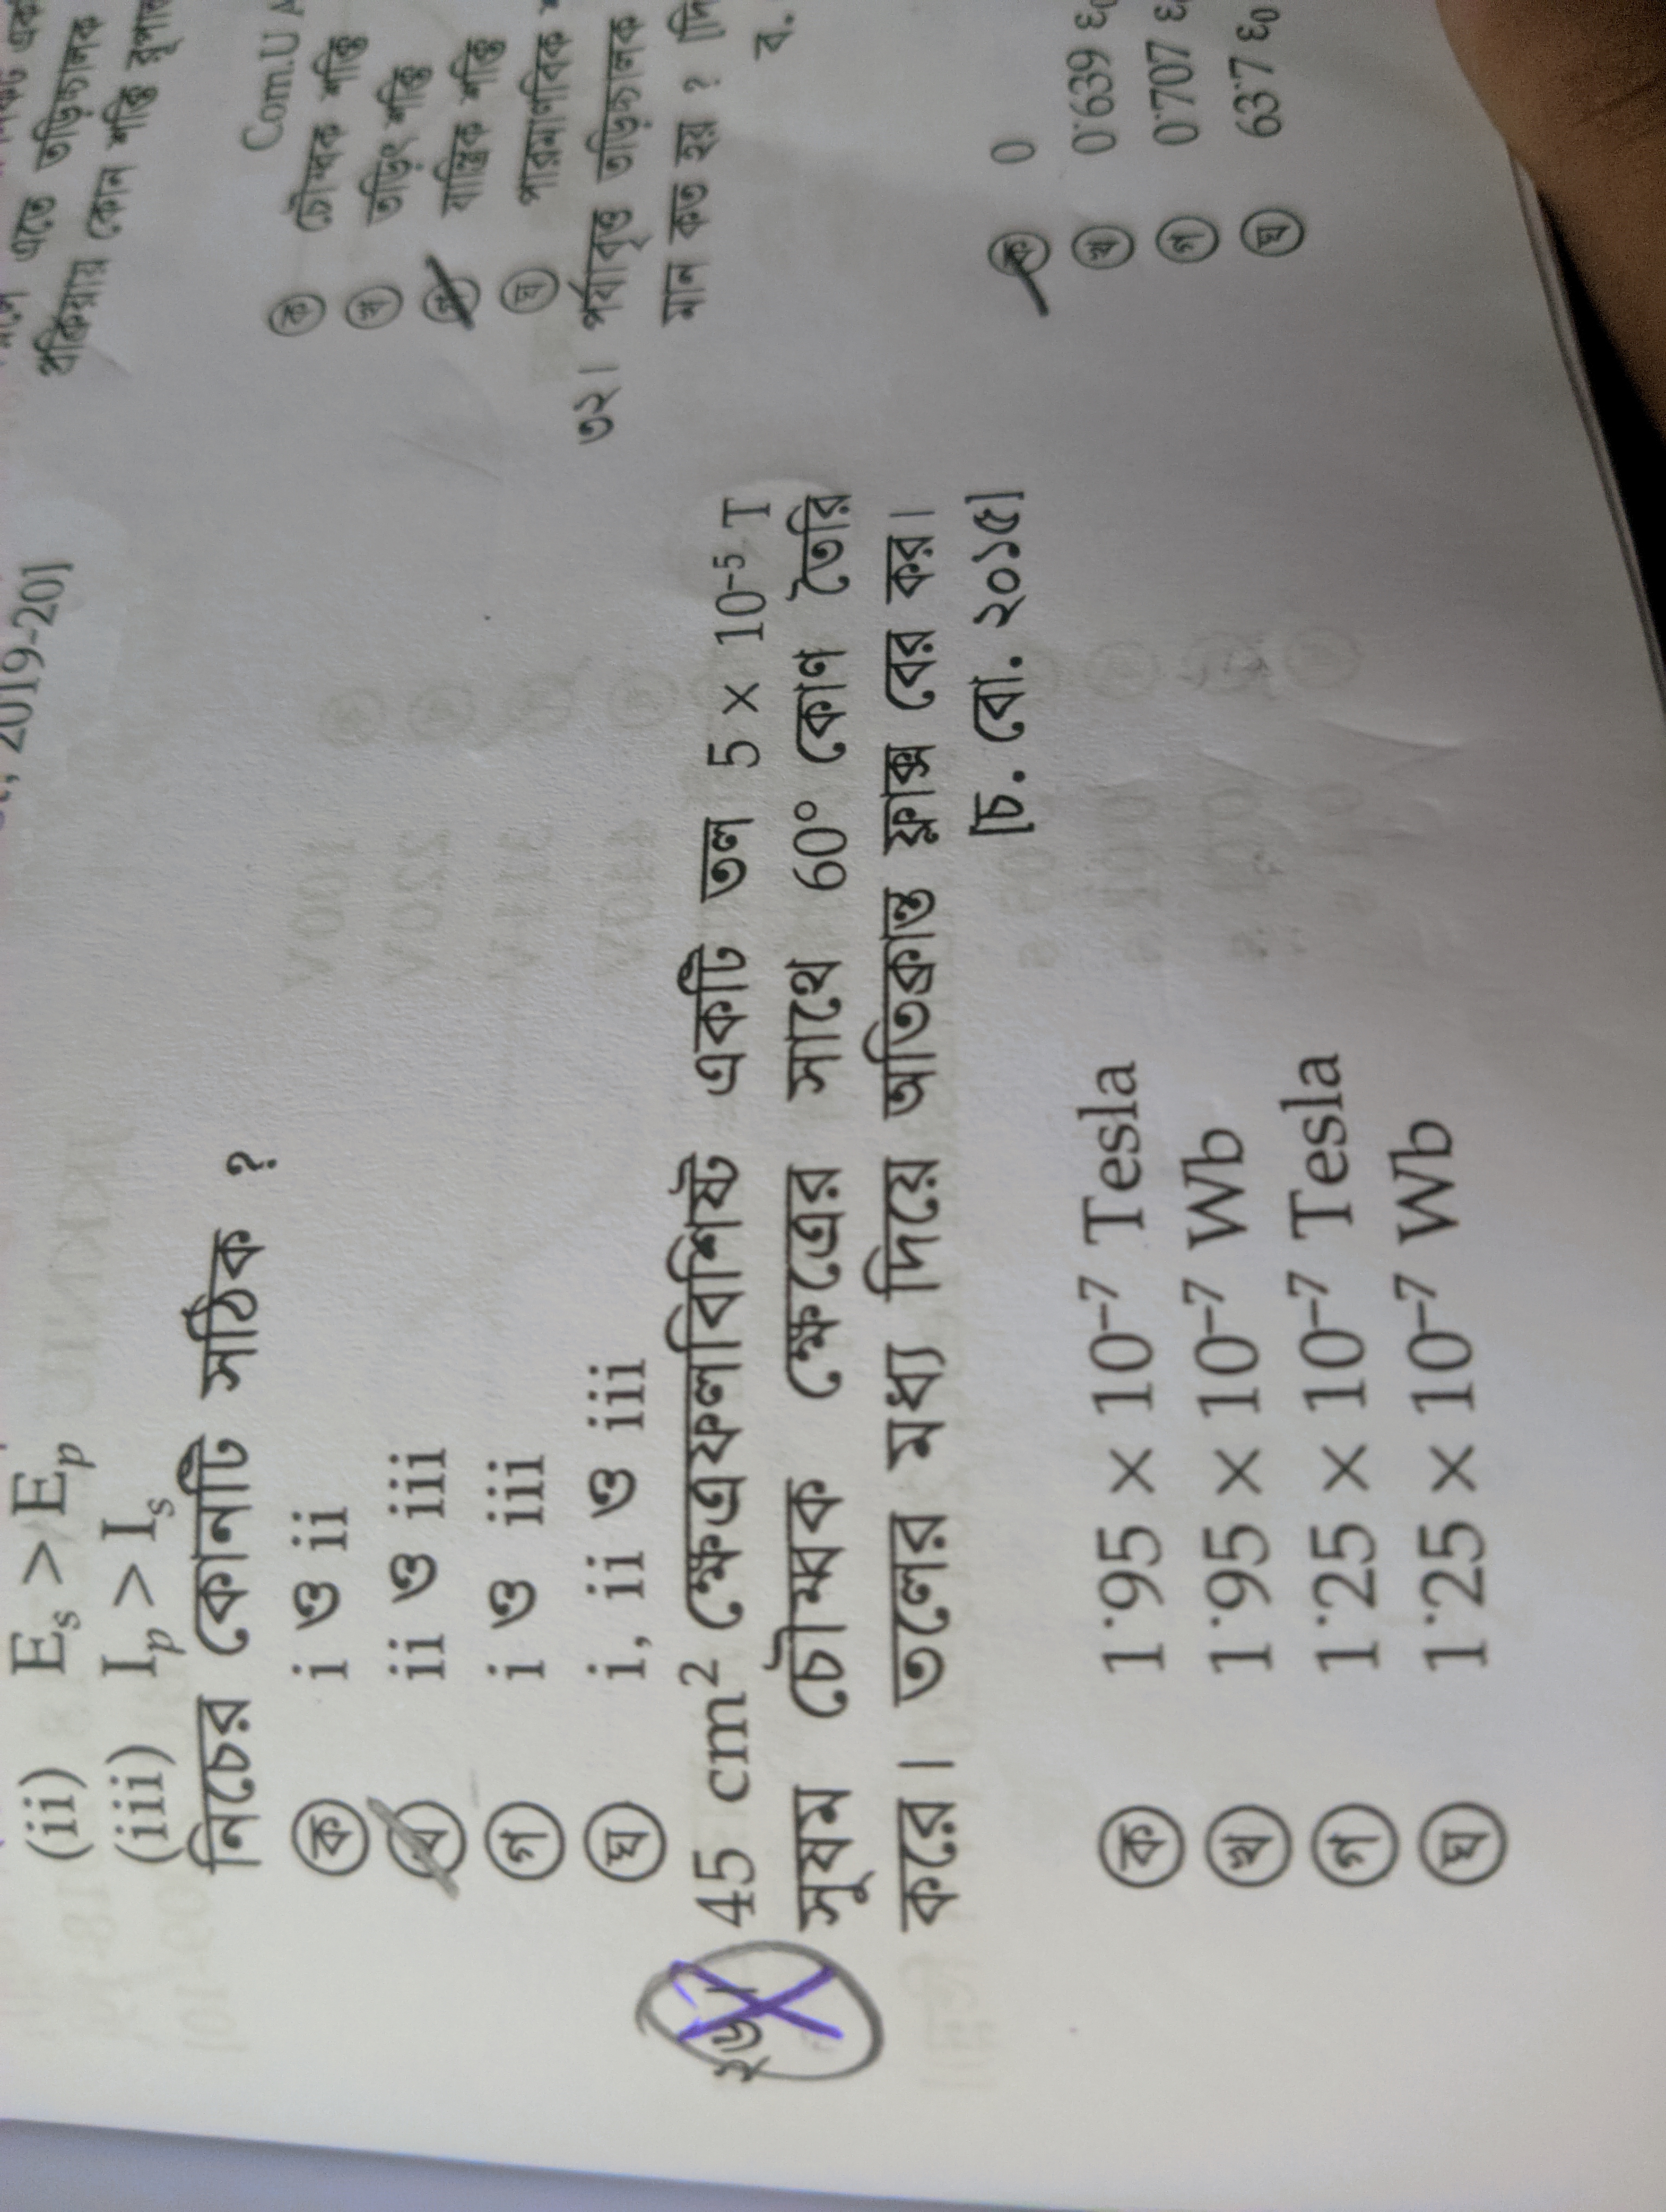 , 2019-20]
(ii) E_s > E_p
(iii) I_p > I_s
নিচের কোনটি সঠিক ?
ক i ও ii
খ ii ও iii
গ i ও iii
ঘ i, ii ও iii
২৬। 45 cm² ক্ষেত্রফলবিশিষ্ট একটি তল 5 × 10⁻⁵ T
সুষম চৌম্বক ক্ষেত্রের সাথে 60° কোণ তৈরি
করে। তলের মধ্য দিয়ে অতিক্রান্ত ফ্লাক্স বের কর।
[চ. বো. ২০১৫]
ক 1·95 × 10⁻⁷ Tesla
খ 1·95 × 10⁻⁷ Wb
গ 1·25 × 10⁻⁷ Tesla
ঘ 1·25 × 10⁻⁷ Wb
এতে তড়িচ্চালক
প্রক্রিয়ায় কোন শক্তি রূপান্ত
Com.U A
ক চৌম্বক শক্তি
খ তড়িৎ শক্তি
গ যান্ত্রিক শক্তি
ঘ পারমাণবিক
৩২। পর্যাবৃত্ত তড়িচ্চালক
মান কত হয় ? [দি
ব.
ক 0
খ 0·639 ε₀
গ 0·707 ε
ঘ 63·7 ε₀